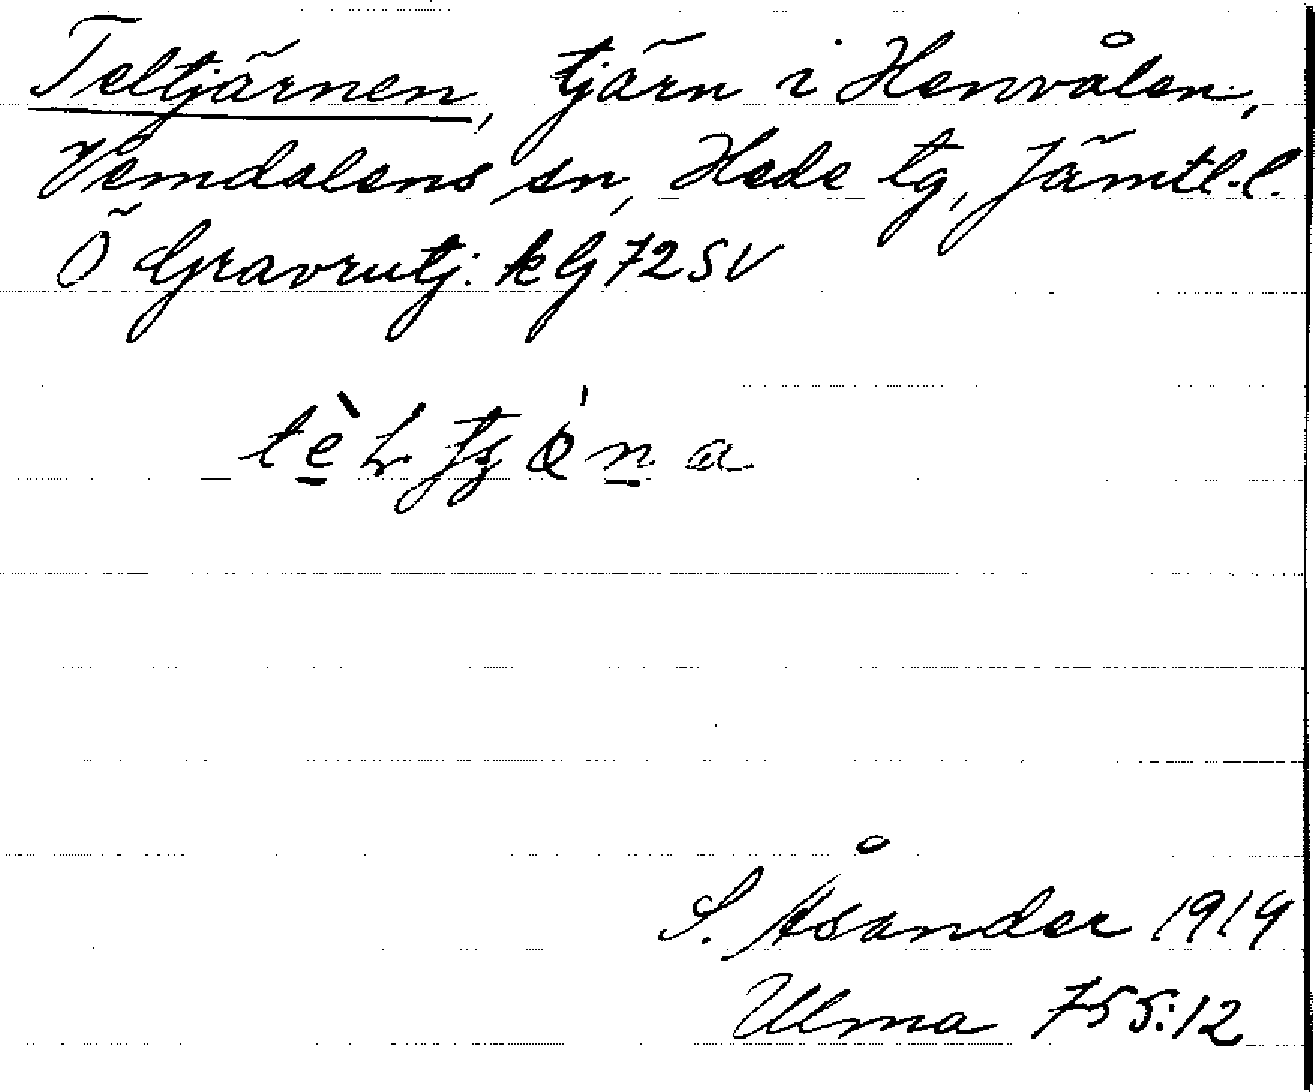 Teltjärnen, tjärn i Henvålen,
Vemdalens sn, Hede tg, Jämtl.l.
Ö Gravrutj: kG72SV
S. Åsander 1919
Ulma 755:12